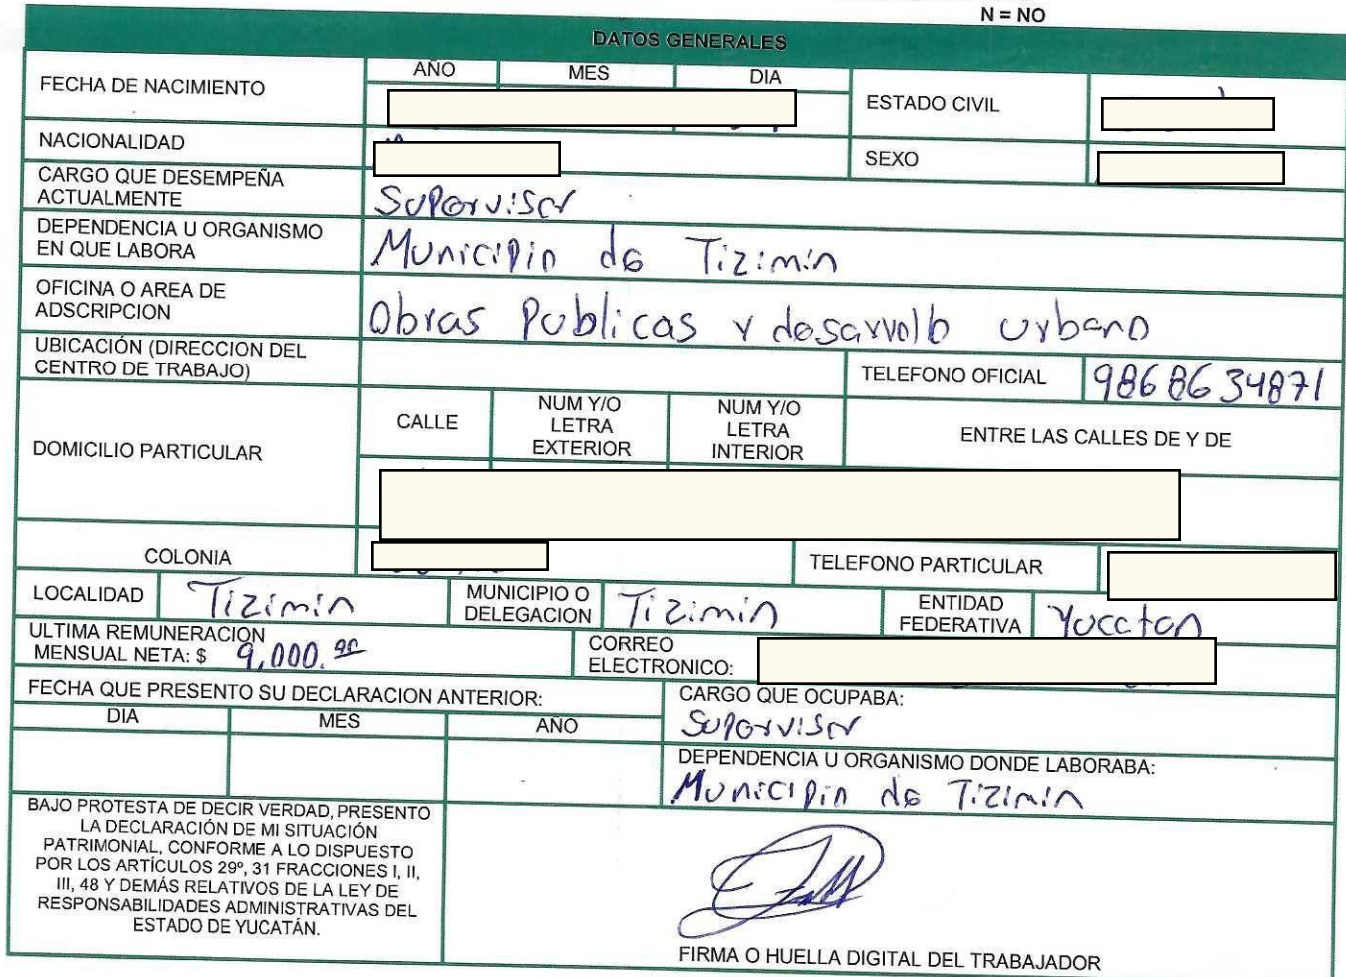 N = NO
DATOS GENERALES
FECHA DE NACIMIENTO
AÑO MES DIA
ESTADO CIVIL
NACIONALIDAD
SEXO
CARGO QUE DESEMPEÑA
ACTUALMENTE
Supervisor
DEPENDENCIA U ORGANISMO
EN QUE LABORA
Municipio de Tizimin
OFICINA O AREA DE
ADSCRIPCION
Obras Publicas y desarrollo urbano
UBICACIÓN (DIRECCION DEL
CENTRO DE TRABAJO)
TELEFONO OFICIAL 9868634871
DOMICILIO PARTICULAR
CALLE
NUM Y/O
LETRA
EXTERIOR
NUM Y/O
LETRA
INTERIOR
ENTRE LAS CALLES DE Y DE
COLONIA
TELEFONO PARTICULAR
LOCALIDAD Tizimin
MUNICIPIO O
DELEGACION
Tizimin
ENTIDAD
FEDERATIVA
Yucatan
ULTIMA REMUNERACION
MENSUAL NETA: $ 9,000.00
CORREO
ELECTRONICO:
FECHA QUE PRESENTO SU DECLARACION ANTERIOR:
DIA MES ANO
CARGO QUE OCUPABA:
Supervisor
DEPENDENCIA U ORGANISMO DONDE LABORABA:
Municipio de Tizimin
BAJO PROTESTA DE DECIR VERDAD, PRESENTO
LA DECLARACIÓN DE MI SITUACIÓN
PATRIMONIAL, CONFORME A LO DISPUESTO
POR LOS ARTÍCULOS 29º, 31 FRACCIONES I, II,
III, 48 Y DEMÁS RELATIVOS DE LA LEY DE
RESPONSABILIDADES ADMINISTRATIVAS DEL
ESTADO DE YUCATÁN.
FIRMA O HUELLA DIGITAL DEL TRABAJADOR